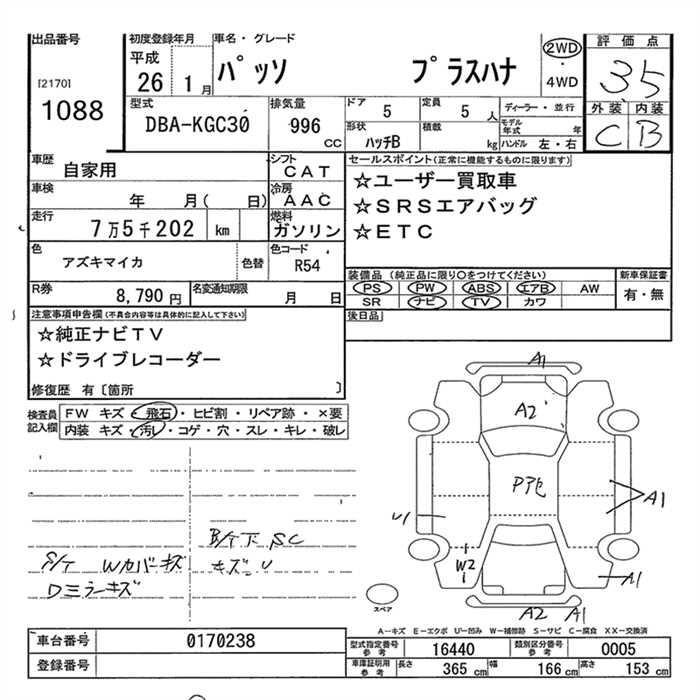 出品番号
[2170]
1088
初度登録年月
平成
26 1月
車名・グレード
パッソ プラスハナ
2WD
・
4WD
評価点
35
外装 内装
C B
型式
DBA-KGC30
排気量
996
CC
ドア
5
定員
5 人
形状
ハッチB
積載
kg
ディーラー・並行
モデル年式 年
ハンドル 左・右
車歴
自家用
シフト
CAT
車検
年 月( 日)
冷房
AAC
走行
7万5千202 km
燃料
ガソリン
色
アズキマイカ
色替
色コード
R54
R券
8,790 円
名変通知期限
月 日
セールスポイント(正常に機能するものに限ります)
☆ユーザー買取車
☆SRSエアバッグ
☆ETC
装備品(純正品に限り○をつけてください)
PS PW ABS エアB AW
SR ナビ TV カワ
新車保証書
有・無
後日品
注意事項申告欄(不具合内容等は具体的に記入して下さい)
☆純正ナビTV
☆ドライブレコーダー
修復歴 有〔箇所 〕
検査員
記入欄
FW キズ・飛石・ヒビ割・リペア跡・×要
内装 キズ・汚レ・コゲ・穴・スレ・キレ・破レ
S/T Wカバーキズ
Dミラーキズ
B/T下 SC
キズ U
A1
A2
Pアセ
A1
U1
W2
A1
A2 A1
スペア
A－キズ E－エクボ U－凹み W－補修跡 S－サビ C－腐食 XX－交換済
車台番号
0170238
登録番号
型式指定番号
参考
16440
類別区分番号
参考
0005
車庫証明用
参考
長さ 365 cm
幅 166 cm
高さ 153 cm